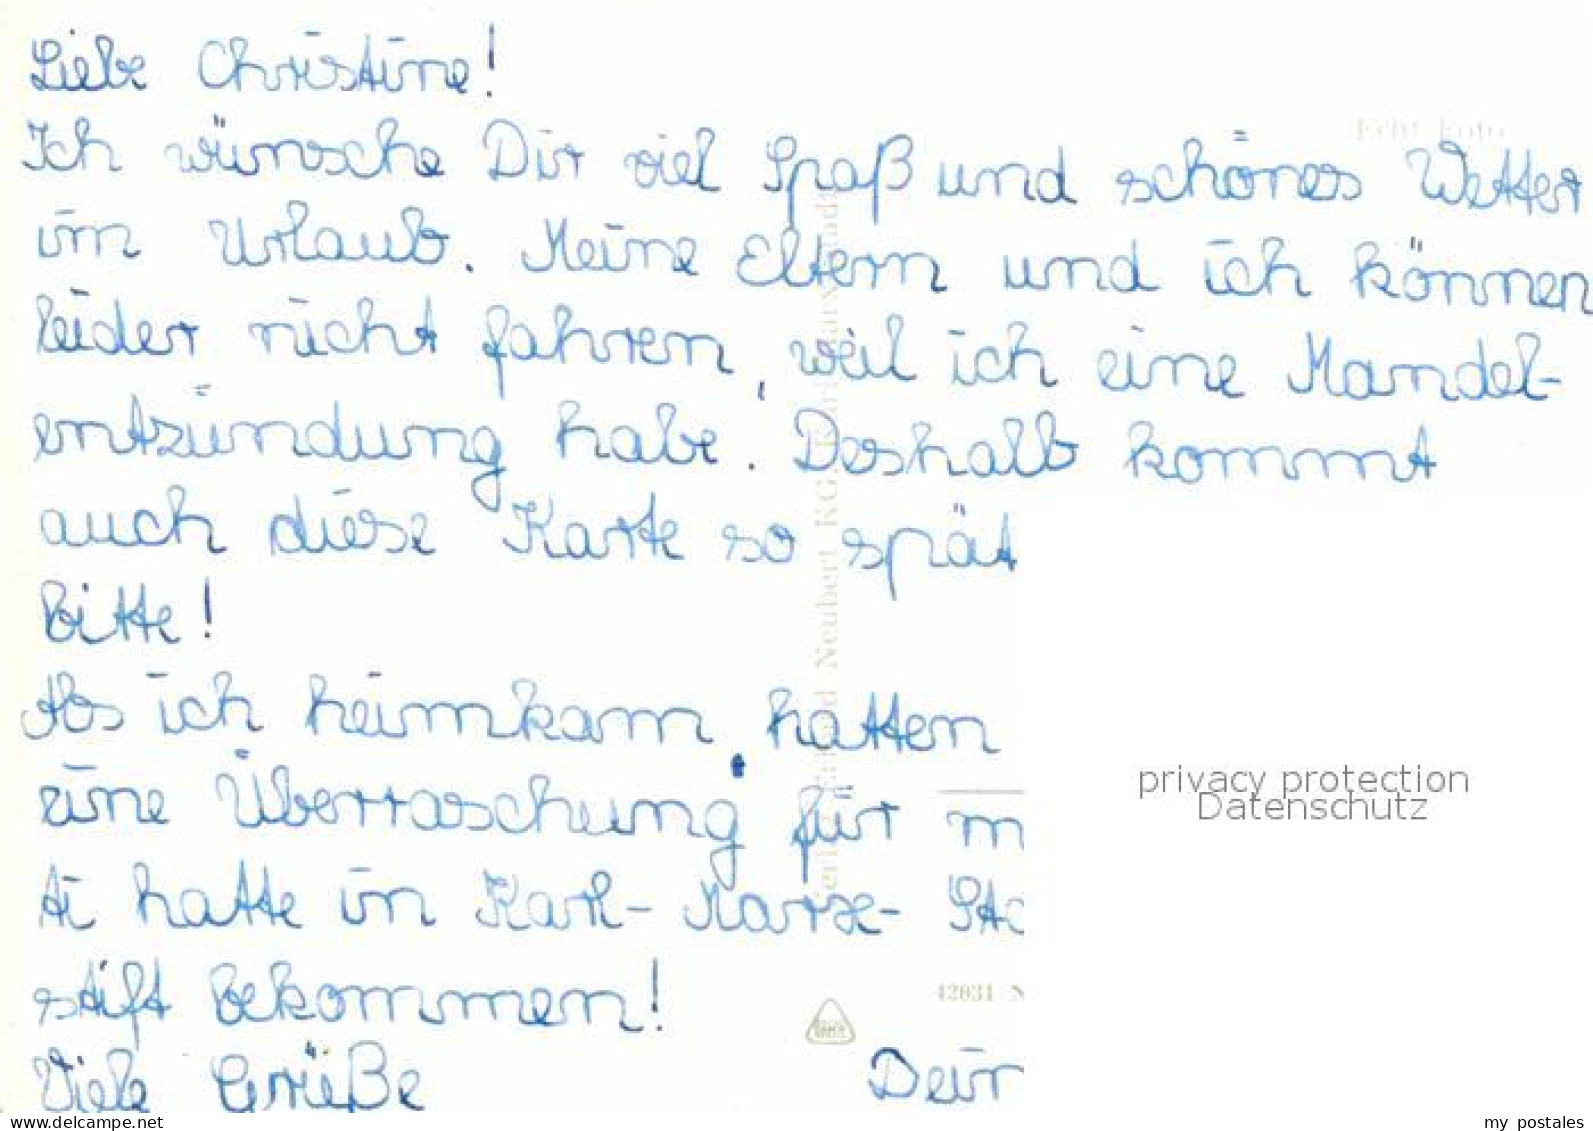 Liebe Christine!
Echt Foto
Ich wünsche Dir viel Spaß und schönes Wetter
im Urlaub. Meine Eltern und ich können
leider nicht fahren, weil ich eine Mandel-
entzündung habe. Deshalb kommt
auch diese Karte so spät
Bitte!
Als ich heimkam, hatten
eine Überraschung für m
ti hatte in Karl-Marx-Sta
stift bekommen!
Viele Grüße Dein
Neubert KG, Karl-Marx-Stadt
42031 N
privacy protection
Datenschutz
www.delcampe.net
my_postales